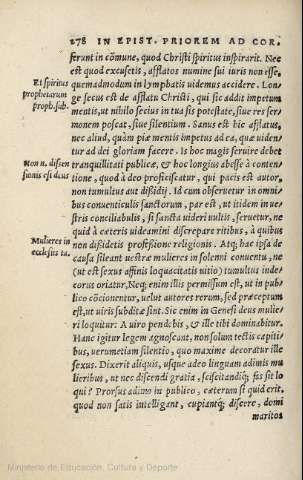 278 IN EPIST. PRIOREM AD COR.
ferunt in cõmune, quod Christi spiritus inspirarit. Nec
est quod excusetis, afflatos numine sui iuris non esse,
quemadmodum in lymphatis uidemus accidere. Lon
Et spiritus
prophetarum
proph. sub.
ge secus est de afflatu Christi, qui sic addit impetum
mentis, ut nihilo secius in tua sis potestate, siue res ser
monem poscat, siue silentium. Sanus est hic afflatus,
nec aliud, quàm piæ mentis impetus ad ea, quæ uiden/
tur ad dei gloriam facere. Is hoc magis seruire debet
Non n. dissen
sionis est deus
tranquillitati publicæ, & hoc longius abesse à conten/
tione, quod à deo proficiscatur, qui pacis est autor,
non tumultus aut dissidij. Id cum obseruetur in omni/
bus conuenticulis sanctorum, par est, ut itidem in ue/
stris conciliabulis, si sancta uideri uultis, seruetur, ne
quid à cæteris uideamini discrepare ritibus, à quibus
Mulieres in
ecclesijs ta.
non dissidetis professione religionis. Atq; hac ipsa de
causa sileant uestræ mulieres in solemni conuentu, ne
(ut est sexus affinis loquacitatis uitio) tumultus inde/
corus oriatur. Neq; enim illis permissum est, ut in pub/
lico cõcionentur, uelut autores rerum, sed præceptum
est, ut uiris subditæ sint. Sic enim in Genesi deus mulie/
ri loquitur: A uiro pendebis, & ille tibi dominabitur.
Hanc igitur legem agnoscant, non solum tectis capiti/
bus, uerumetiam silentio, quo maxime decoratur ille
sexus. Dixerit aliquis, usque adeo linguam adimis mu
lieribus, ut nec discendi gratia, sciscitandiq; fas sit lo
qui? Prorsus adimo in publico, cæterum si quid erit,
quod non satis intelligant, cupiantq; discere, domi
maritos
Ministerio de Educación, Cultura y Deporte